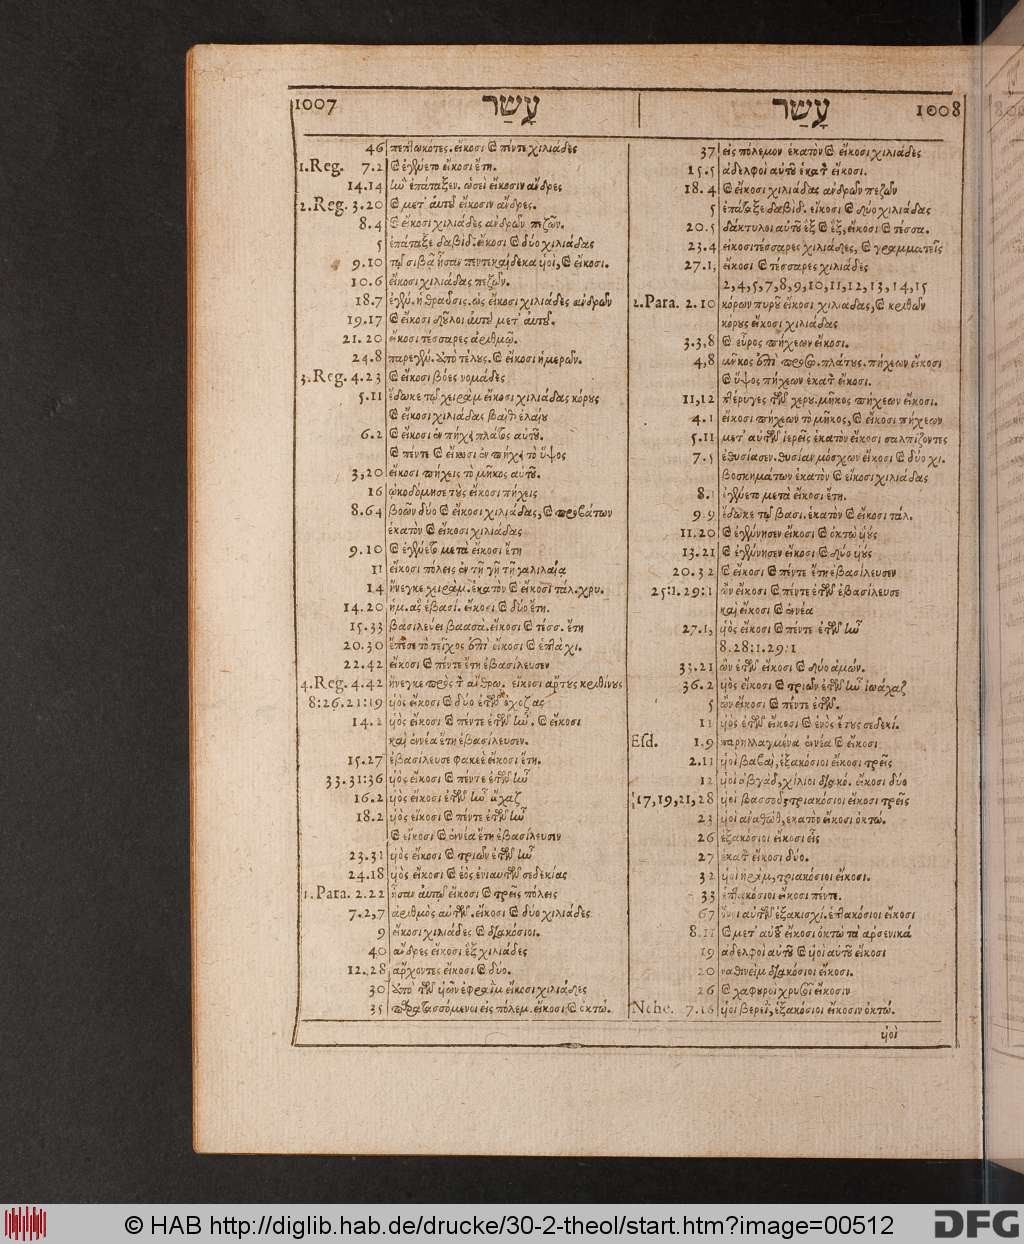 1007 עָשַׂר
עָשַׂר 1008
46 πεπτωκότες. εἴκοσι καὶ πέντε χιλιάδες
1.Reg. 7.2 καὶ ἐγένετο εἴκοσι ἔτη.
14.14 ἣν ἐπάταξεν. ὡσεὶ εἴκοσιν ἄνδρες
2.Reg. 3.20 καὶ μετ' αὐτοῦ εἴκοσιν ἄνδρες.
8.4 καὶ εἴκοσι χιλιάδες ἀνδρῶν πεζῶν.
5 ἐπάταξε δαβίδ. εἴκοσι καὶ δύο χιλιάδας
9.10 τῷ σιβᾶ ἦσαν πεντεκαίδεκα υἱοὶ, καὶ εἴκοσι.
10.6 εἴκοσι χιλιάδας πεζῶν.
18.7 ἐγέν. ἡ θραῦσις. ὡς εἴκοσι χιλιάδες ἀνδρῶν
19.17 καὶ εἴκοσι δοῦλοι αὐτοῦ μετ' αὐτοῦ.
21.20 εἴκοσι τέσσαρες ἀριθμῷ.
24.8 παρεγέν. ὑπὸ τέλους. καὶ εἴκοσι ἡμερῶν.
3.Reg. 4.23 καὶ εἴκοσι βόες νομάδες
5.11 ἔδωκε τῷ χειρὰμ εἴκοσι χιλιάδας κόρους
καὶ εἴκοσι χιλιάδας βαὶθ ἐλαίου
6.2 καὶ εἴκοσι ἐν πήχει πλάτος αὐτοῦ.
καὶ πέντε καὶ εἴκοσι ἐν πήχει τὸ ὕψος
3,20 εἴκοσι πήχεις τὸ μῆκος αὐτοῦ.
16 ᾠκοδόμησε τοὺς εἴκοσι πήχεις
8.64 βοῶν δύο καὶ εἴκοσι χιλιάδας, καὶ προβάτων
ἑκατὸν καὶ εἴκοσι χιλιάδας
9.10 καὶ ἐγένετο μετὰ εἴκοσι ἔτη
11 εἴκοσι πόλεις ἐν τῇ γῇ τῇ γαλιλαίᾳ
14 ἤνεγκε χιράμ. ἑκατὸν καὶ εἴκοσι τάλ. χρυ.
14.20 ἡμ. ἃς ἐβασί. εἴκοσι καὶ δύο ἔτη.
15.33 βασιλεύει βαασὰ. εἴκοσι καὶ τέσσ. ἔτη
20.30 ἔπεσε τὸ τεῖχος ἐπὶ εἴκοσι καὶ ἑπτὰ χι.
22.42 εἴκοσι καὶ πέντε ἔτη ἐβασίλευσεν
4.Reg. 4.42 ἤνεγκε πρὸς τ ἄνθρω. εἴκοσι ἄρτους κριθίνους
8:26.21:19 υἱὸς εἴκοσι καὶ δύο ἐτῶν ὀχοζίας
14.2 υἱὸς εἴκοσι καὶ πέντε ἐτῶν ἦν. καὶ εἴκοσι
καὶ ἐννέα ἔτη ἐβασίλευσεν.
15.27 ἐβασίλευσε φακεὲ εἴκοσι ἔτη.
33.31:36 υἱὸς εἴκοσι καὶ πέντε ἐτῶν ἦν
16.2 υἱὸς εἴκοσι ἐτῶν ἦν ἄχαζ
18.2 υἱὸς εἴκοσι καὶ πέντε ἐτῶν ἦν
καὶ εἴκοσι καὶ ἐννέα ἔτη ἐβασίλευσεν
23.31 υἱὸς εἴκοσι καὶ τριῶν ἐτῶν ἦν
24.18 υἱὸς εἴκοσι καὶ ἑὸς ἐνιαυτῶν σεδεκίας
1.Para. 2.22 ἦσαν αὐτῷ εἴκοσι καὶ τρεῖς πόλεις
7.2,7 ἀριθμὸς αὐτῶν. εἴκοσι καὶ δύο χιλιάδες
9 εἴκοσι χιλιάδες καὶ διακόσιοι.
40 ἄνδρες εἴκοσι ἓξ χιλιάδες
12.28 ἄρχοντες εἴκοσι καὶ δύο.
30 ὑπὸ τῶν υἱῶν ἐφραὶμ εἴκοσι χιλιάδες
35 παρατασσόμενοι εἰς πόλεμ. εἴκοσι καὶ ὀκτώ.
37 εἰς πόλεμον ἑκατὸν καὶ εἴκοσι χιλιάδες
15.5 ἀδελφοὶ αὐτοῦ ἑκατ εἴκοσι.
18.4 καὶ εἴκοσι χιλιάδας ἀνδρῶν πεζῶν
5 ἐπάταξε δαβίδ. εἴκοσι καὶ δύο χιλιάδας
20.5 δάκτυλοι αὐτοῦ ἓξ καὶ ἓξ, εἴκοσι καὶ τέσσα.
23.4 εἰκοσιτέσσαρες χιλιάδες, καὶ γραμματεῖς
27.1, εἴκοσι καὶ τέσσαρες χιλιάδες
2,4,5,7,8,9,10,11,12,13,14,15
2.Para. 2.10 κόρων πυροῦ εἴκοσι χιλιάδας, καὶ κριθῶν
κόρους εἴκοσι χιλιάδας
3.3,8 καὶ εὖρος πήχεων εἴκοσι.
4,8 μῆκος ἐπὶ πρόσ. πλάτους. πήχεων εἴκοσι
καὶ ὕψος πήχεων ἑκατ εἴκοσι.
11,12 πτέρυγες τῶν χερου. μῆκος πήχεων εἴκοσι.
4.1 εἴκοσι πήχεων τὸ μῆκος, καὶ εἴκοσι πήχεων
5.11 μετ' αὐτῶν ἱερεῖς ἑκατὸν εἴκοσι σαλπίζοντες
7.5 ἐθυσίασεν. θυσίαν μόσχων εἴκοσι καὶ δύο χι.
βοσκημάτων ἑκατὸν καὶ εἴκοσι χιλιάδας
8.1 ἐγένετο μετὰ εἴκοσι ἔτη.
9.9 ἔδωκε τῷ βασι. ἑκατὸν καὶ εἴκοσι τάλ.
11.20 καὶ ἐγέννησεν εἴκοσι καὶ ὀκτὼ υἱοὺς
13.21 καὶ ἐγέννησεν εἴκοσι καὶ δύο υἱοὺς
20.32 καὶ εἴκοσι καὶ πέντε ἔτη ἐβασίλευσεν
25:1.29:1 ὢν εἴκοσι καὶ πέντε ἐτῶν ἐβασίλευσε
καὶ εἴκοσι καὶ ἐννέα
27.1, υἱὸς εἴκοσι καὶ πέντε ἐτῶν ἦν
8.28:1.29:1
33.21 ὢν ἐτῶν εἴκοσι καὶ δύο ἀμών.
36.2 υἱὸς εἴκοσι καὶ τριῶν ἐτῶν ἦν ἰωάχαζ
5 ὢν εἴκοσι καὶ πέντε ἐτῶν.
11 υἱὸς ἐτῶν εἴκοσι καὶ ἑνὸς ἔτους σεδεκί.
Esd. 1.9 παρηλλαγμένα ἐννέα καὶ εἴκοσι
2.11 υἱοὶ βαβαὶ, ἑξακόσιοι εἴκοσι τρεῖς
12 υἱοὶ ἀβγὰδ, χίλιοι διακό. εἴκοσι δύο
17,19,21,28 υἱοὶ βασσοῦ, τριακόσιοι εἴκοσι τρεῖς
23 υἱοὶ ἀναθὼθ, ἑκατὸν εἴκοσι ὀκτώ.
26 ἑξακόσιοι εἴκοσι εἷς
27 ἑκατ εἴκοσι δύο.
32 υἱοὶ ἠρὰμ, τριακόσιοι εἴκοσι.
33 ἑπτακόσιοι εἴκοσι πέντε.
67 ὄνοι αὐτῶν ἑξακισχί. ἑπτακόσιοι εἴκοσι
8.11 καὶ μετ' αὐτοῦ εἴκοσι ὀκτὼ τὰ ἀρσενικά
19 ἀδελφοὶ αὐτοῦ καὶ υἱοὶ αὐτοῦ εἴκοσι
20 ναθινεὶμ διακόσιοι εἴκοσι.
26 καὶ χαφουροὶ χρυσοῖ εἴκοσιν
Nehe. 7.16 υἱοὶ βερεὶ, ἑξακόσιοι εἴκοσιν ὀκτώ.
υἱοὶ
© HAB http://diglib.hab.de/drucke/30-2-theol/start.htm?image=00512
DFG